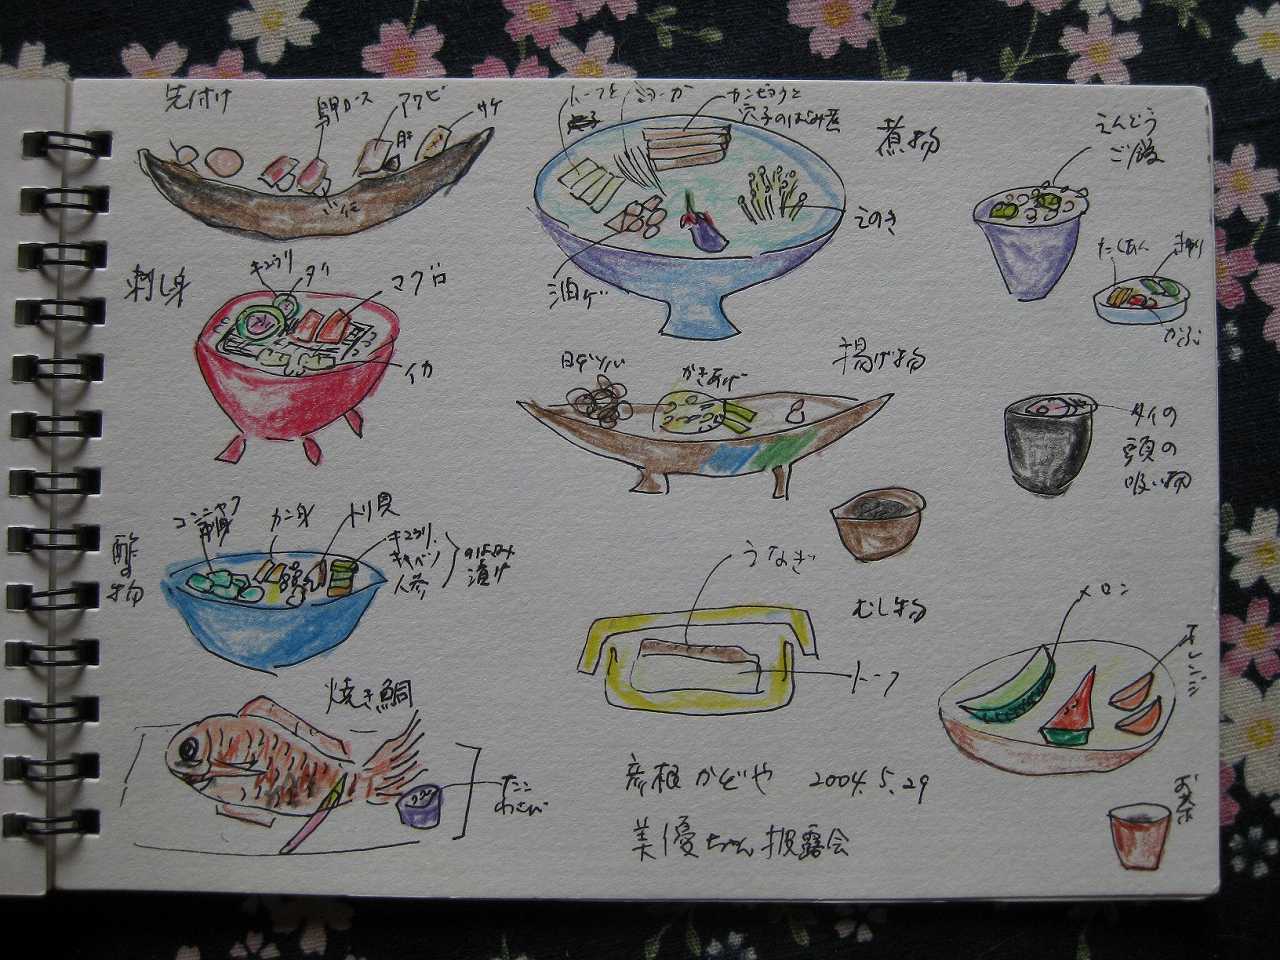 先付け
アワビ
サケ
肝
刺し身
キュウリ
タイ
マグロ
イカ
トーフと
ミョーガ
カンピョウと
穴子のはさみ煮
煮物
えのき
油ゲ
えんどう
ご飯
たくあん
かぶ
揚げ物
かきあげ
タイの
頭の
吸い物
酢の物
コンニャク
カニ身
トリ貝
キュウリ、
キャベツ
人参
のはさみ
漬け
うなぎ
むし物
トーフ
メロン
オレンジ
お茶
焼き鯛
たこ
わさび
彦根 かどや 2004.5.29
美優ちゃん披露会